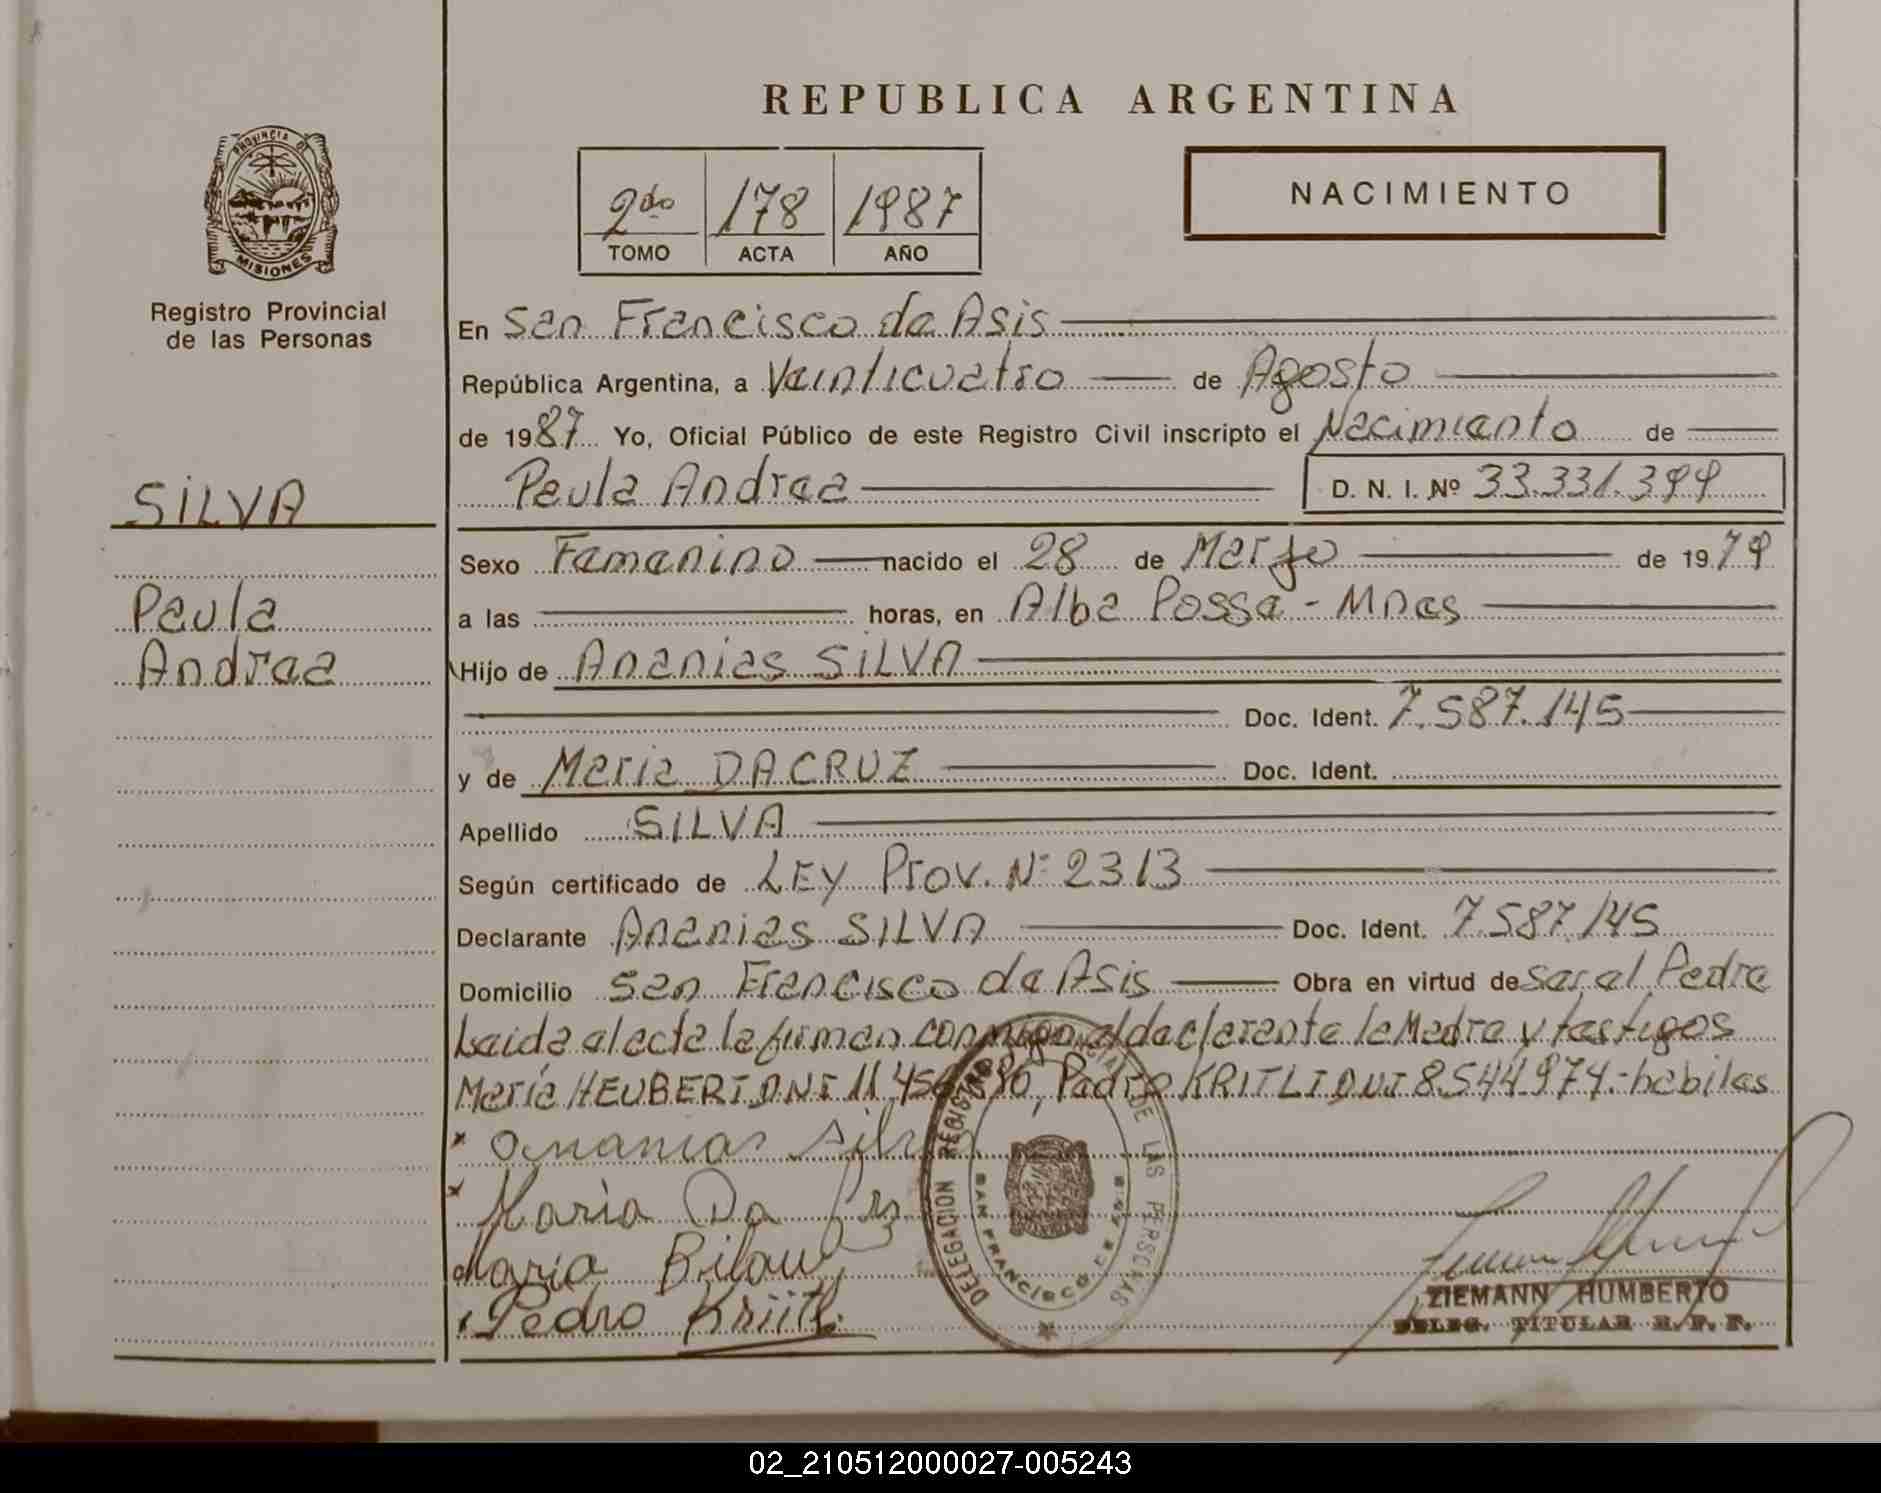 REPUBLICA ARGENTINA
PROVINCIA DE
MISIONES
Registro Provincial
de las Personas
2do 178 1987
TOMO ACTA AÑO
NACIMIENTO
En San Francisco de Asis
República Argentina, a Veinticuatro de Agosto
de 1987 Yo, Oficial Público de este Registro Civil inscripto el Nacimiento de
Paula Andrea D. N. I. Nº 33.331.399
SILVA
Paula
Andrea
Sexo Femenino nacido el 28 de Marzo de 1979
a las horas, en Alba Possa - Mnes
Hijo de Ananias SILVA
Doc. Ident. 7.587.145
y de Maria DACRUZ Doc. Ident.
Apellido SILVA
Según certificado de LEY Prov. Nº 2313
Declarante Ananias SILVA Doc. Ident. 7.587.145
Domicilio San Francisco de Asis Obra en virtud de ser el Padre
Leida el acta la firman conmigo, el declarante la Madre y testigos
María HEUBERT DNI 11.45 80, Pedro KRITLI DNI 8.544.974.- habiles
Ananias Silva
Maria Da
Maria
Pedro
DELEGACION REGISTRO PROVINCIAL DE LAS PERSONAS
SAN FRANCISCO DE ASIS
ZIEMANN HUMBERTO
DELEG. TITULAR R. P. P.
02_210512000027-005243